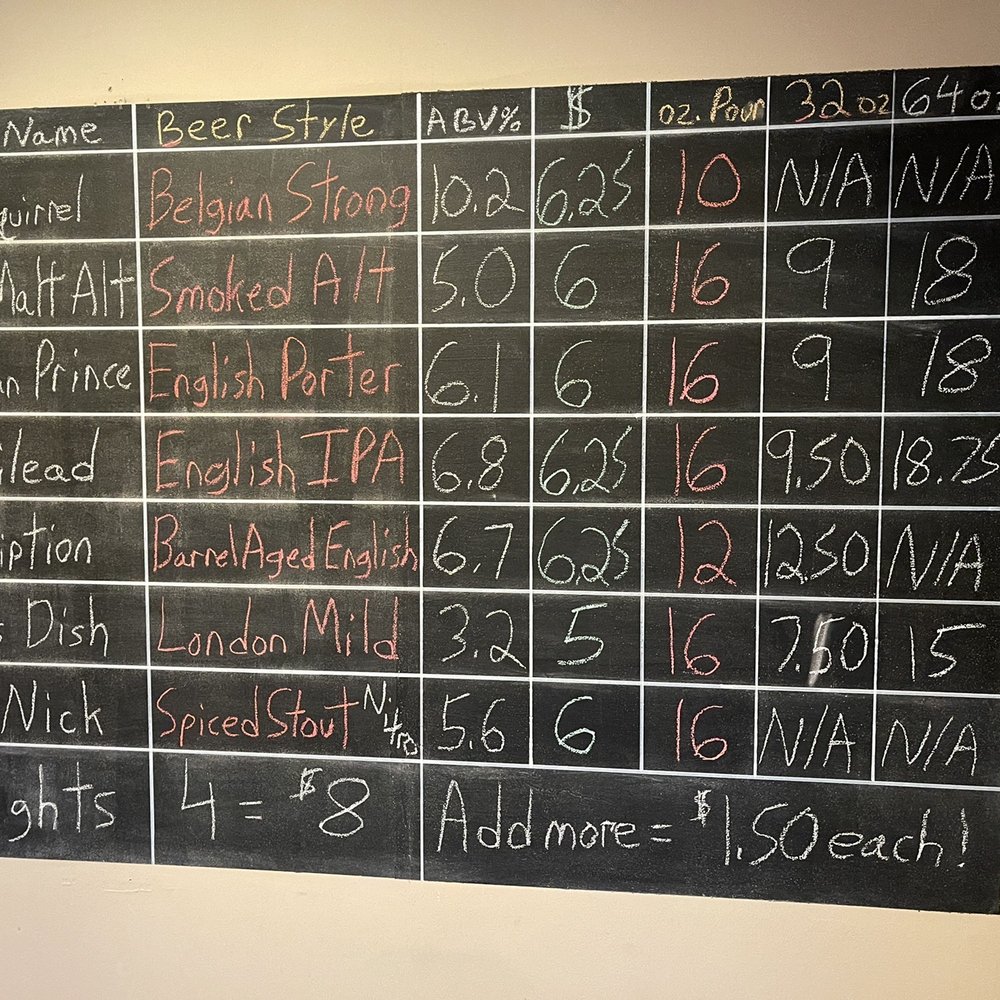 Name Beer Style ABV% $ oz. Pour 32oz 64oz
quirrel Belgian Strong 10.2 6.25 10 N/A N/A
Malt Alt Smoked Alt 5.0 6 16 9 18
n Prince English Porter 6.1 6 16 9 18
ilead English IPA 6.8 6.25 16 9.50 18.75
iption Barrel Aged English 6.7 6.25 12 12.50 N/A
s Dish London Mild 3.2 5 16 7.50 15
Nick Spiced Stout Nitro 5.6 6 16 N/A N/A
ghts 4 = $8 Add more = $1.50 each!